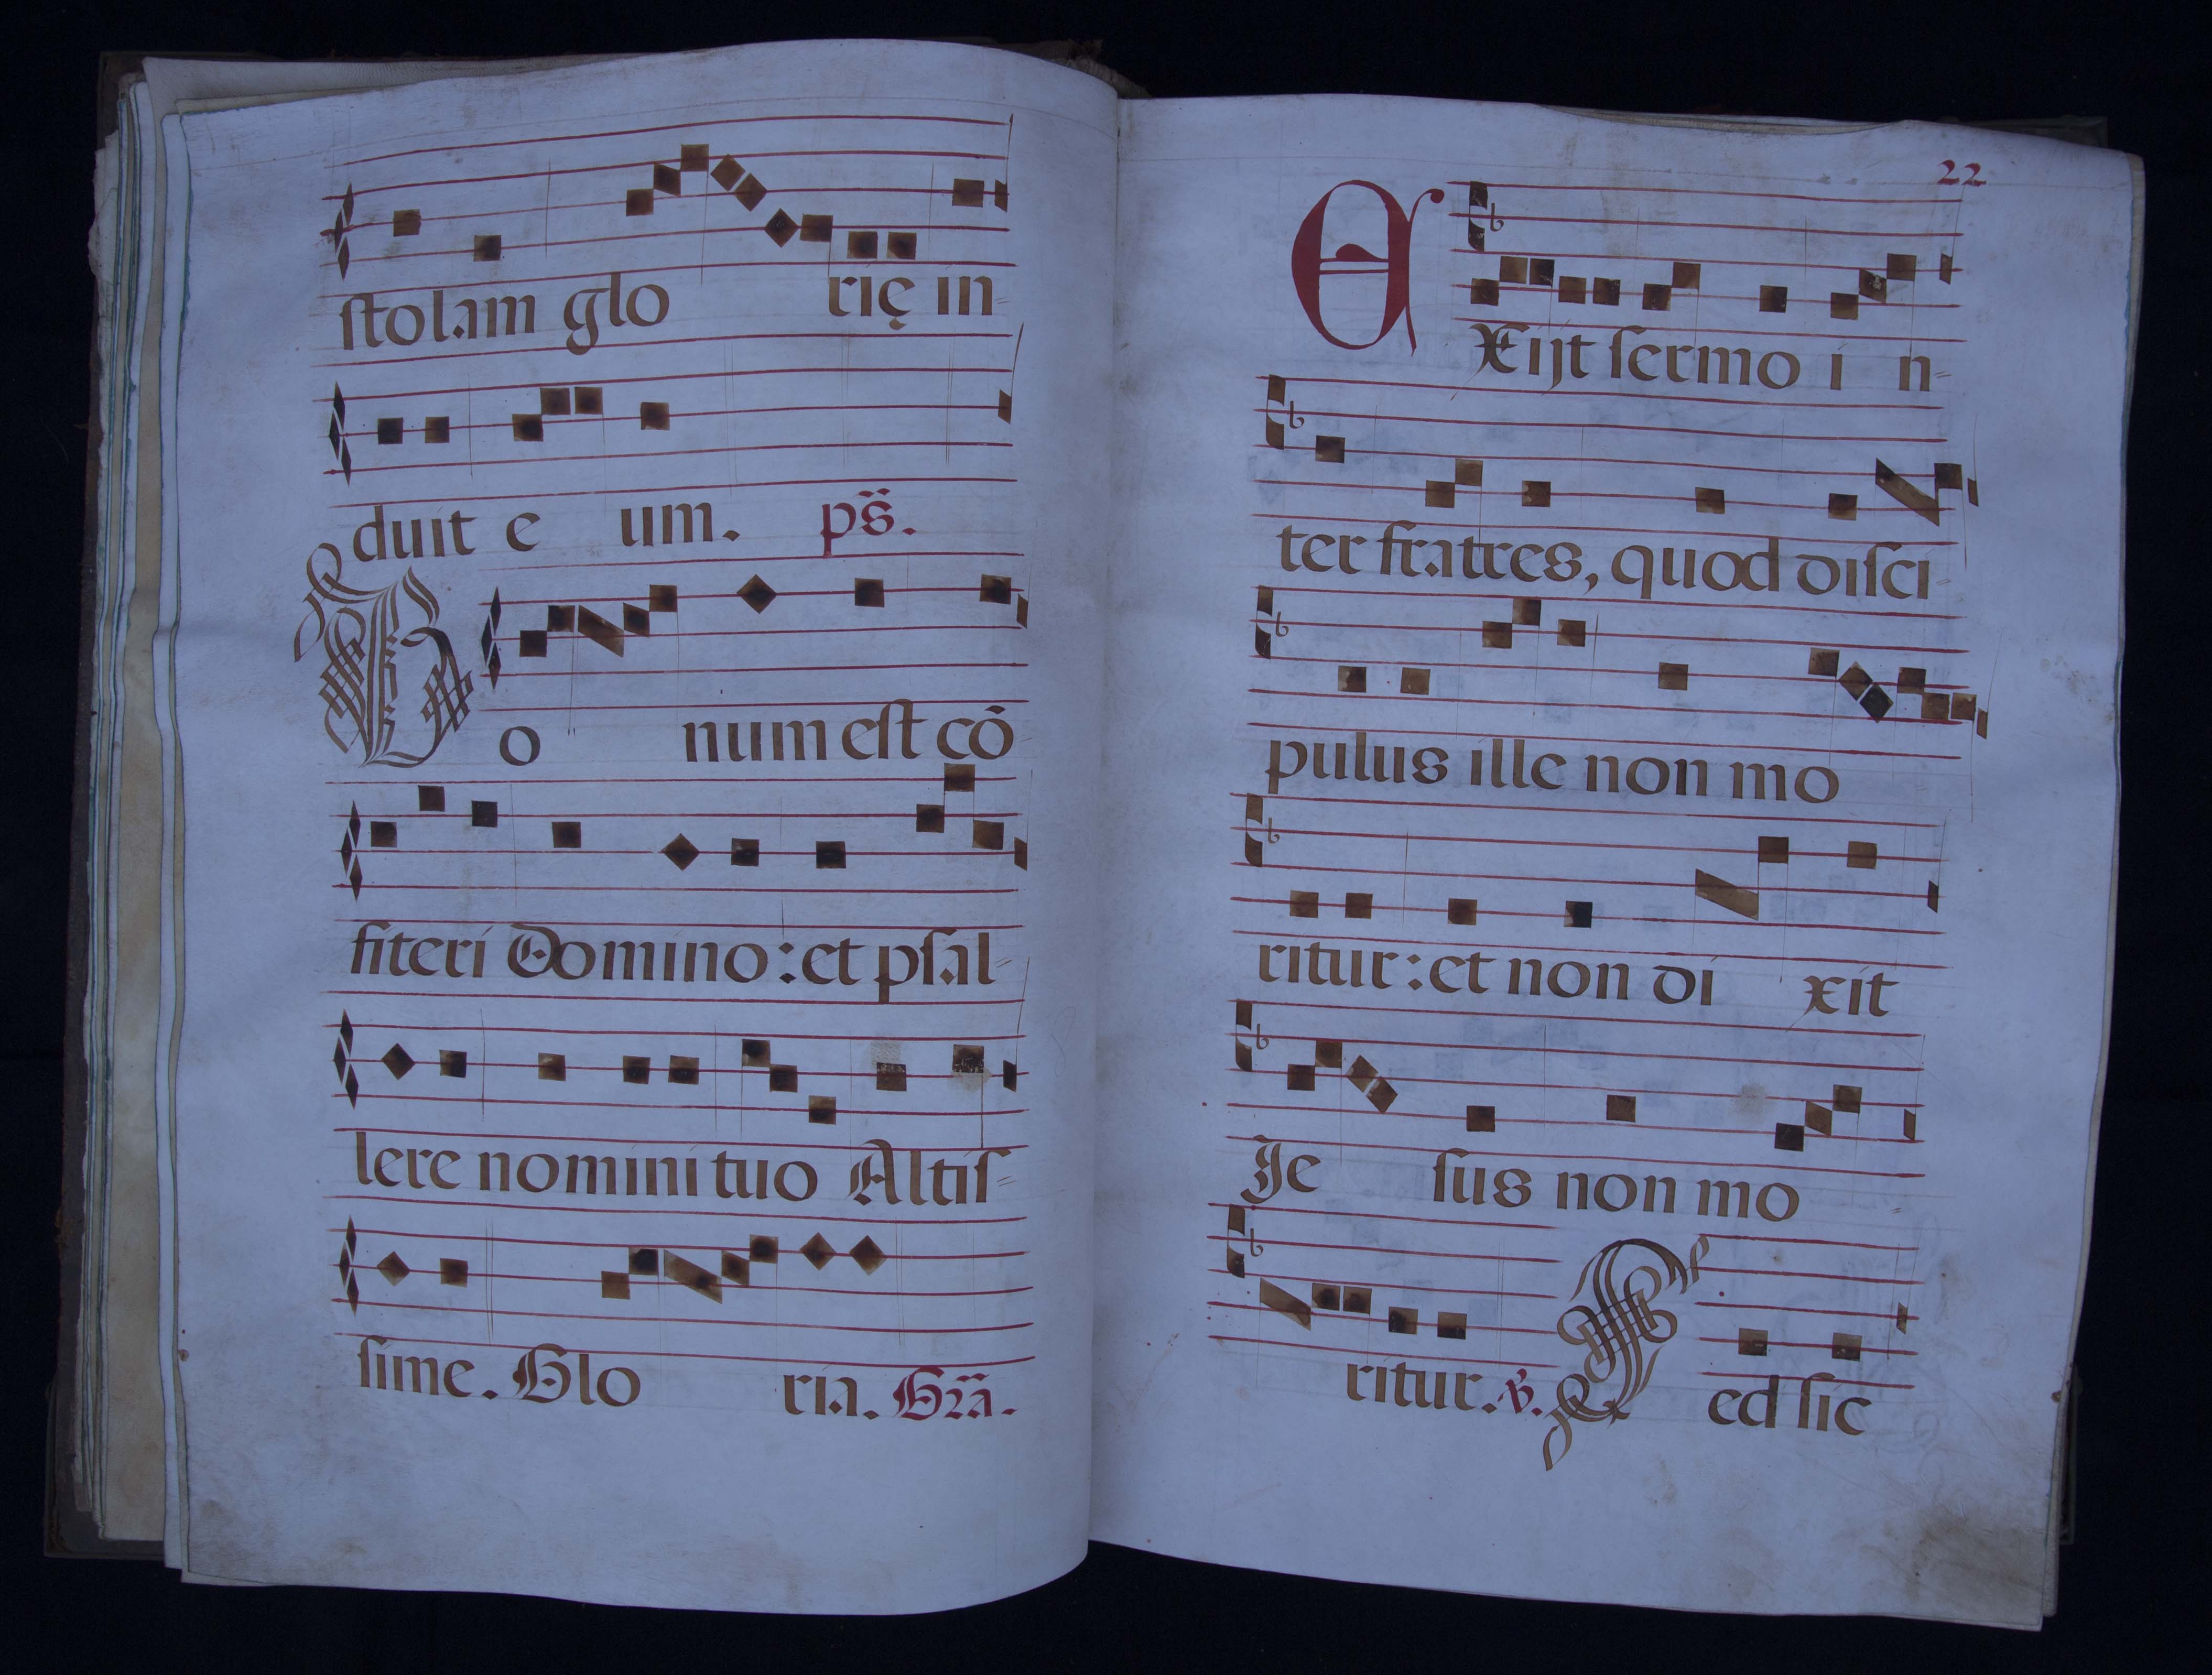 stolam glo rię in-
duit e um. ps.
Bo num est cō
fiteri Domino: et psal-
lere nomini tuo Altis-
sime. Glo ria. Gra.
22
EXijt sermo i n-
ter fratres, quod disci-
pulus ille non mo
ritur: et non di xit
Je sus non mo-
ritur. ℣. Sed sic